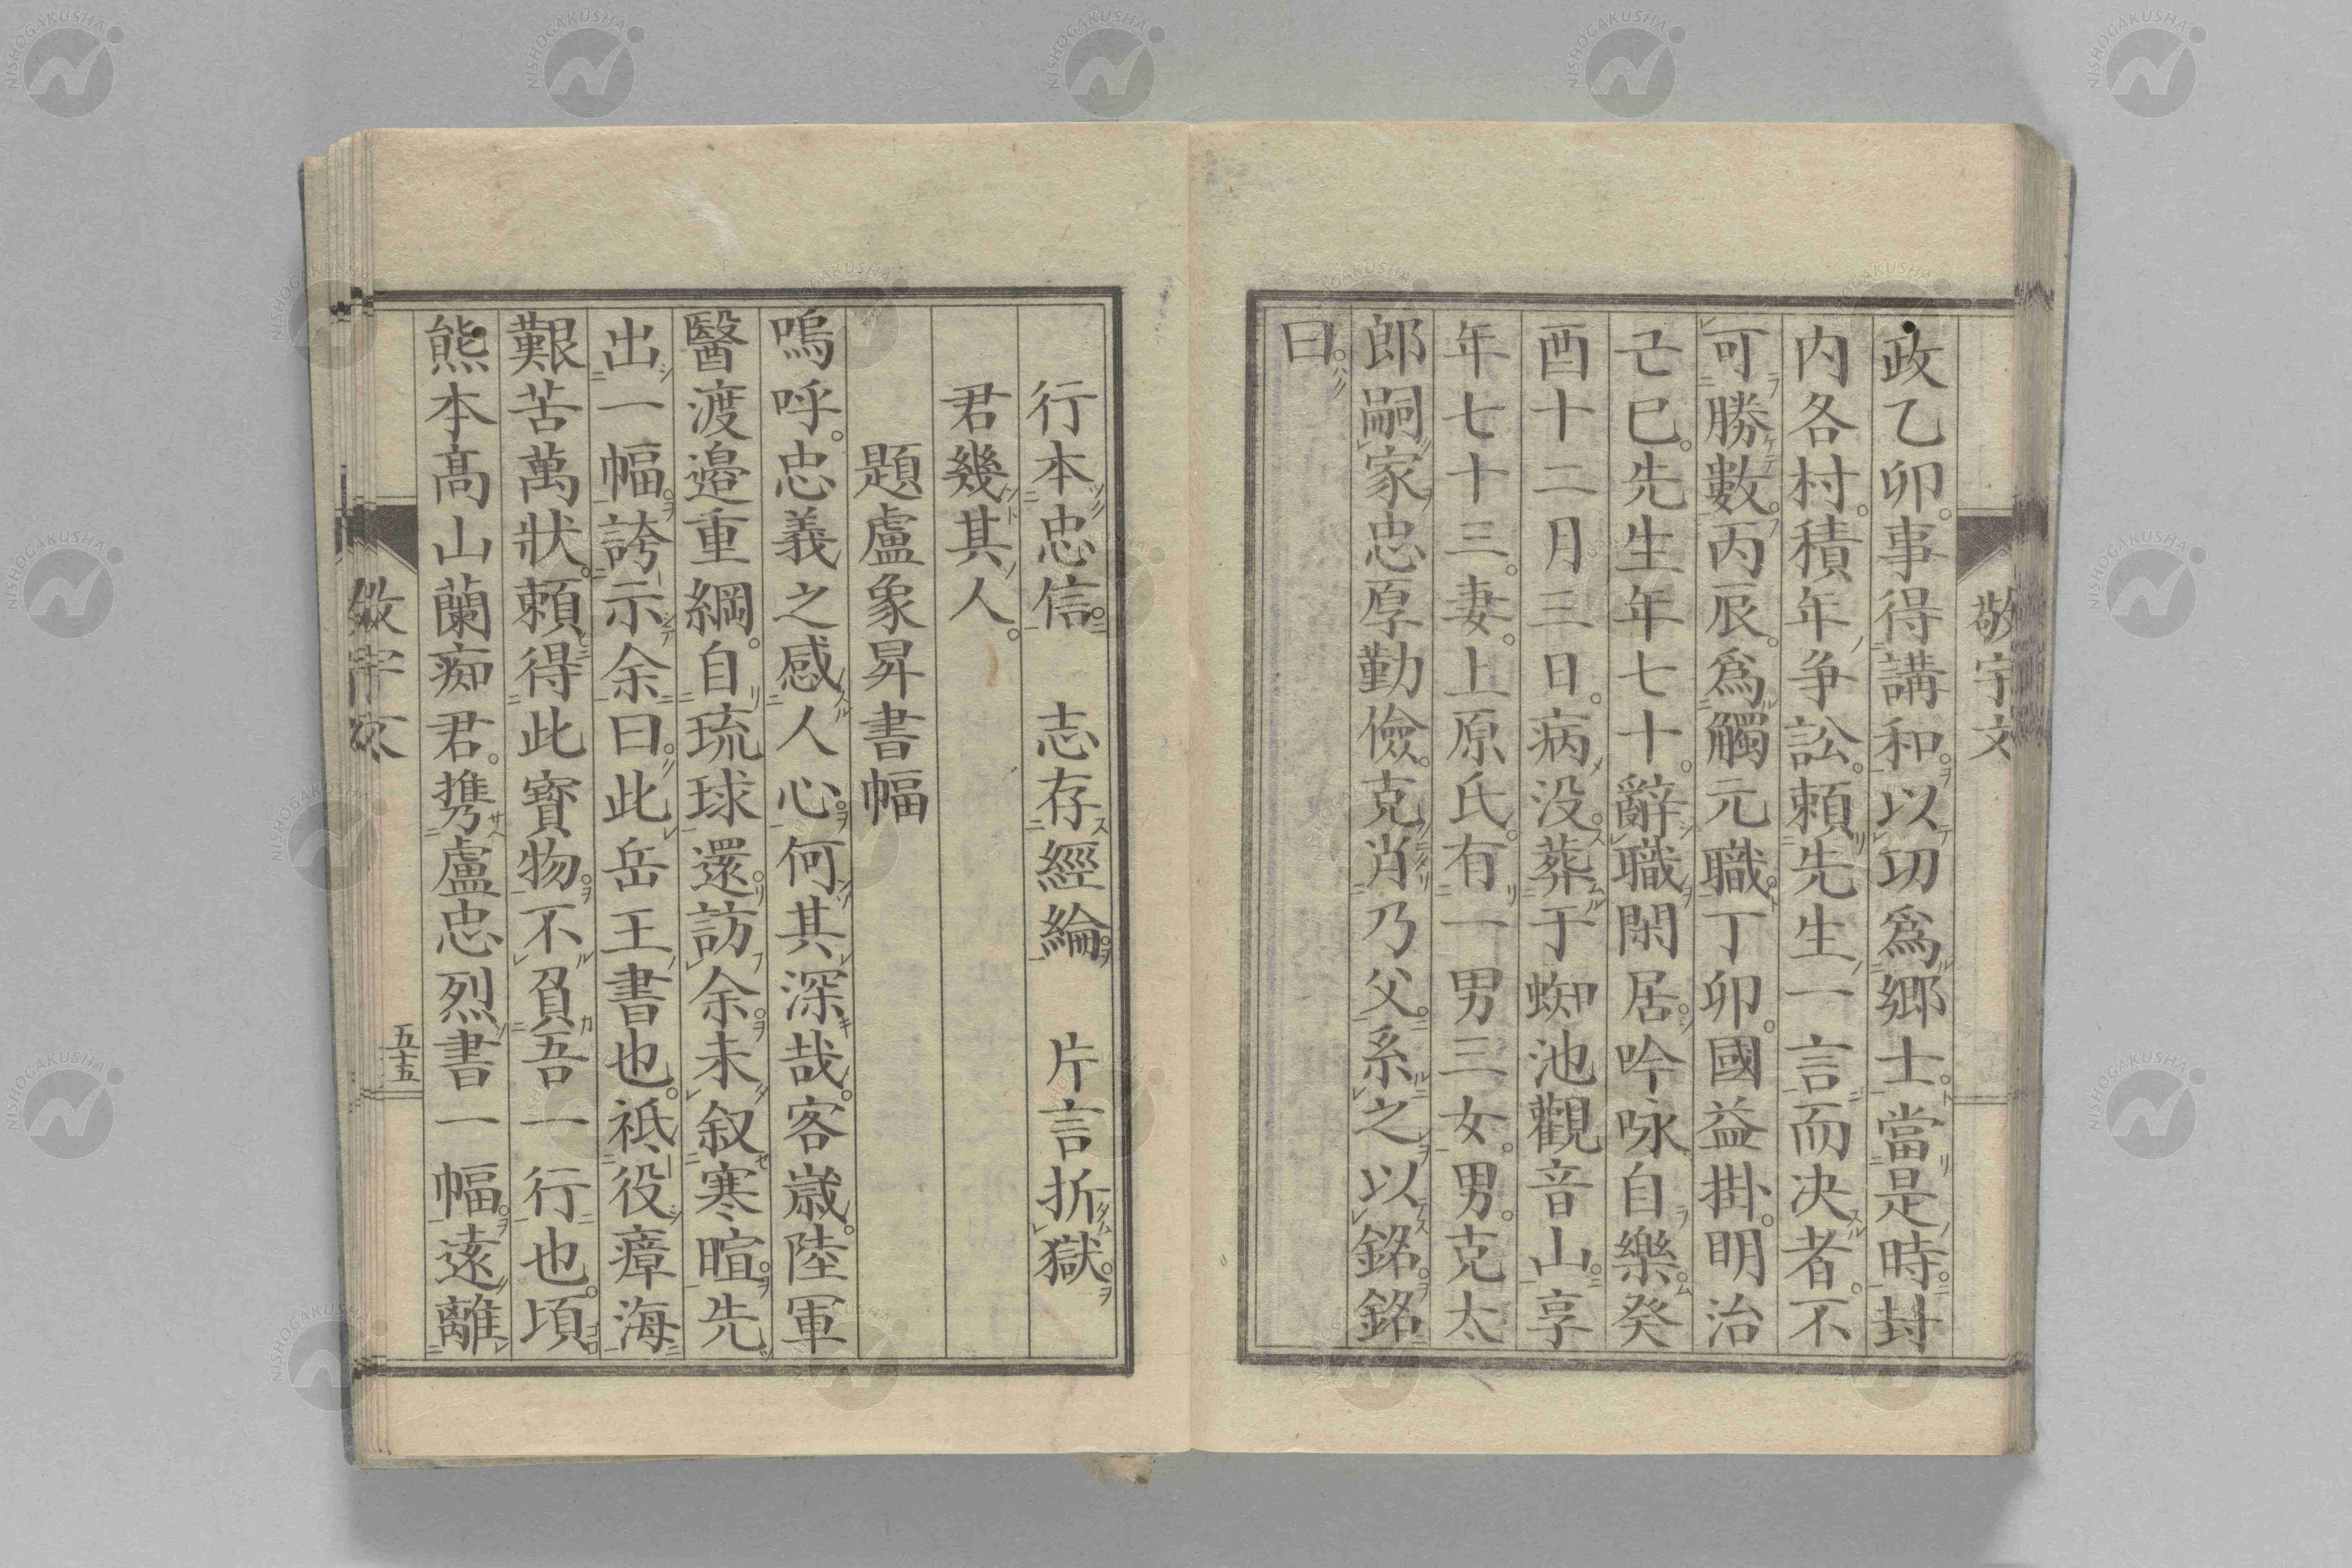 敬宇文
政乙卯。事得講和。以功爲郷士。當是時。封
内各村。積年争訟。頼先生一言而决者。不
可勝數。丙辰。爲觸元職。丁卯。國益掛。明治
己巳。先生年七十。辭職閑居。吟咏自樂。癸
酉十二月三日。病没。葬于蜘池觀音山。享
年七十三。妻。上原氏。有一男三女。男。克太
郎嗣家忠厚勤儉。克肖乃父。系之以銘。銘
曰。
行本忠信。 志存經綸。 片言折獄。
君幾其人。
題盧象昇書幅
嗚呼。忠義之感人心。何其深哉。客歳。陸軍
醫渡邉重綱。自琉球還。訪余。未叙寒暄。先
出一幅。誇示余曰。此岳王書也。祗役瘴海
艱苦萬狀。頼得此寳物。不負吾一行也。頃
熊本髙山蘭痴君。携盧忠烈書一幅。遠離
五十五
NISHOGAKUSHA